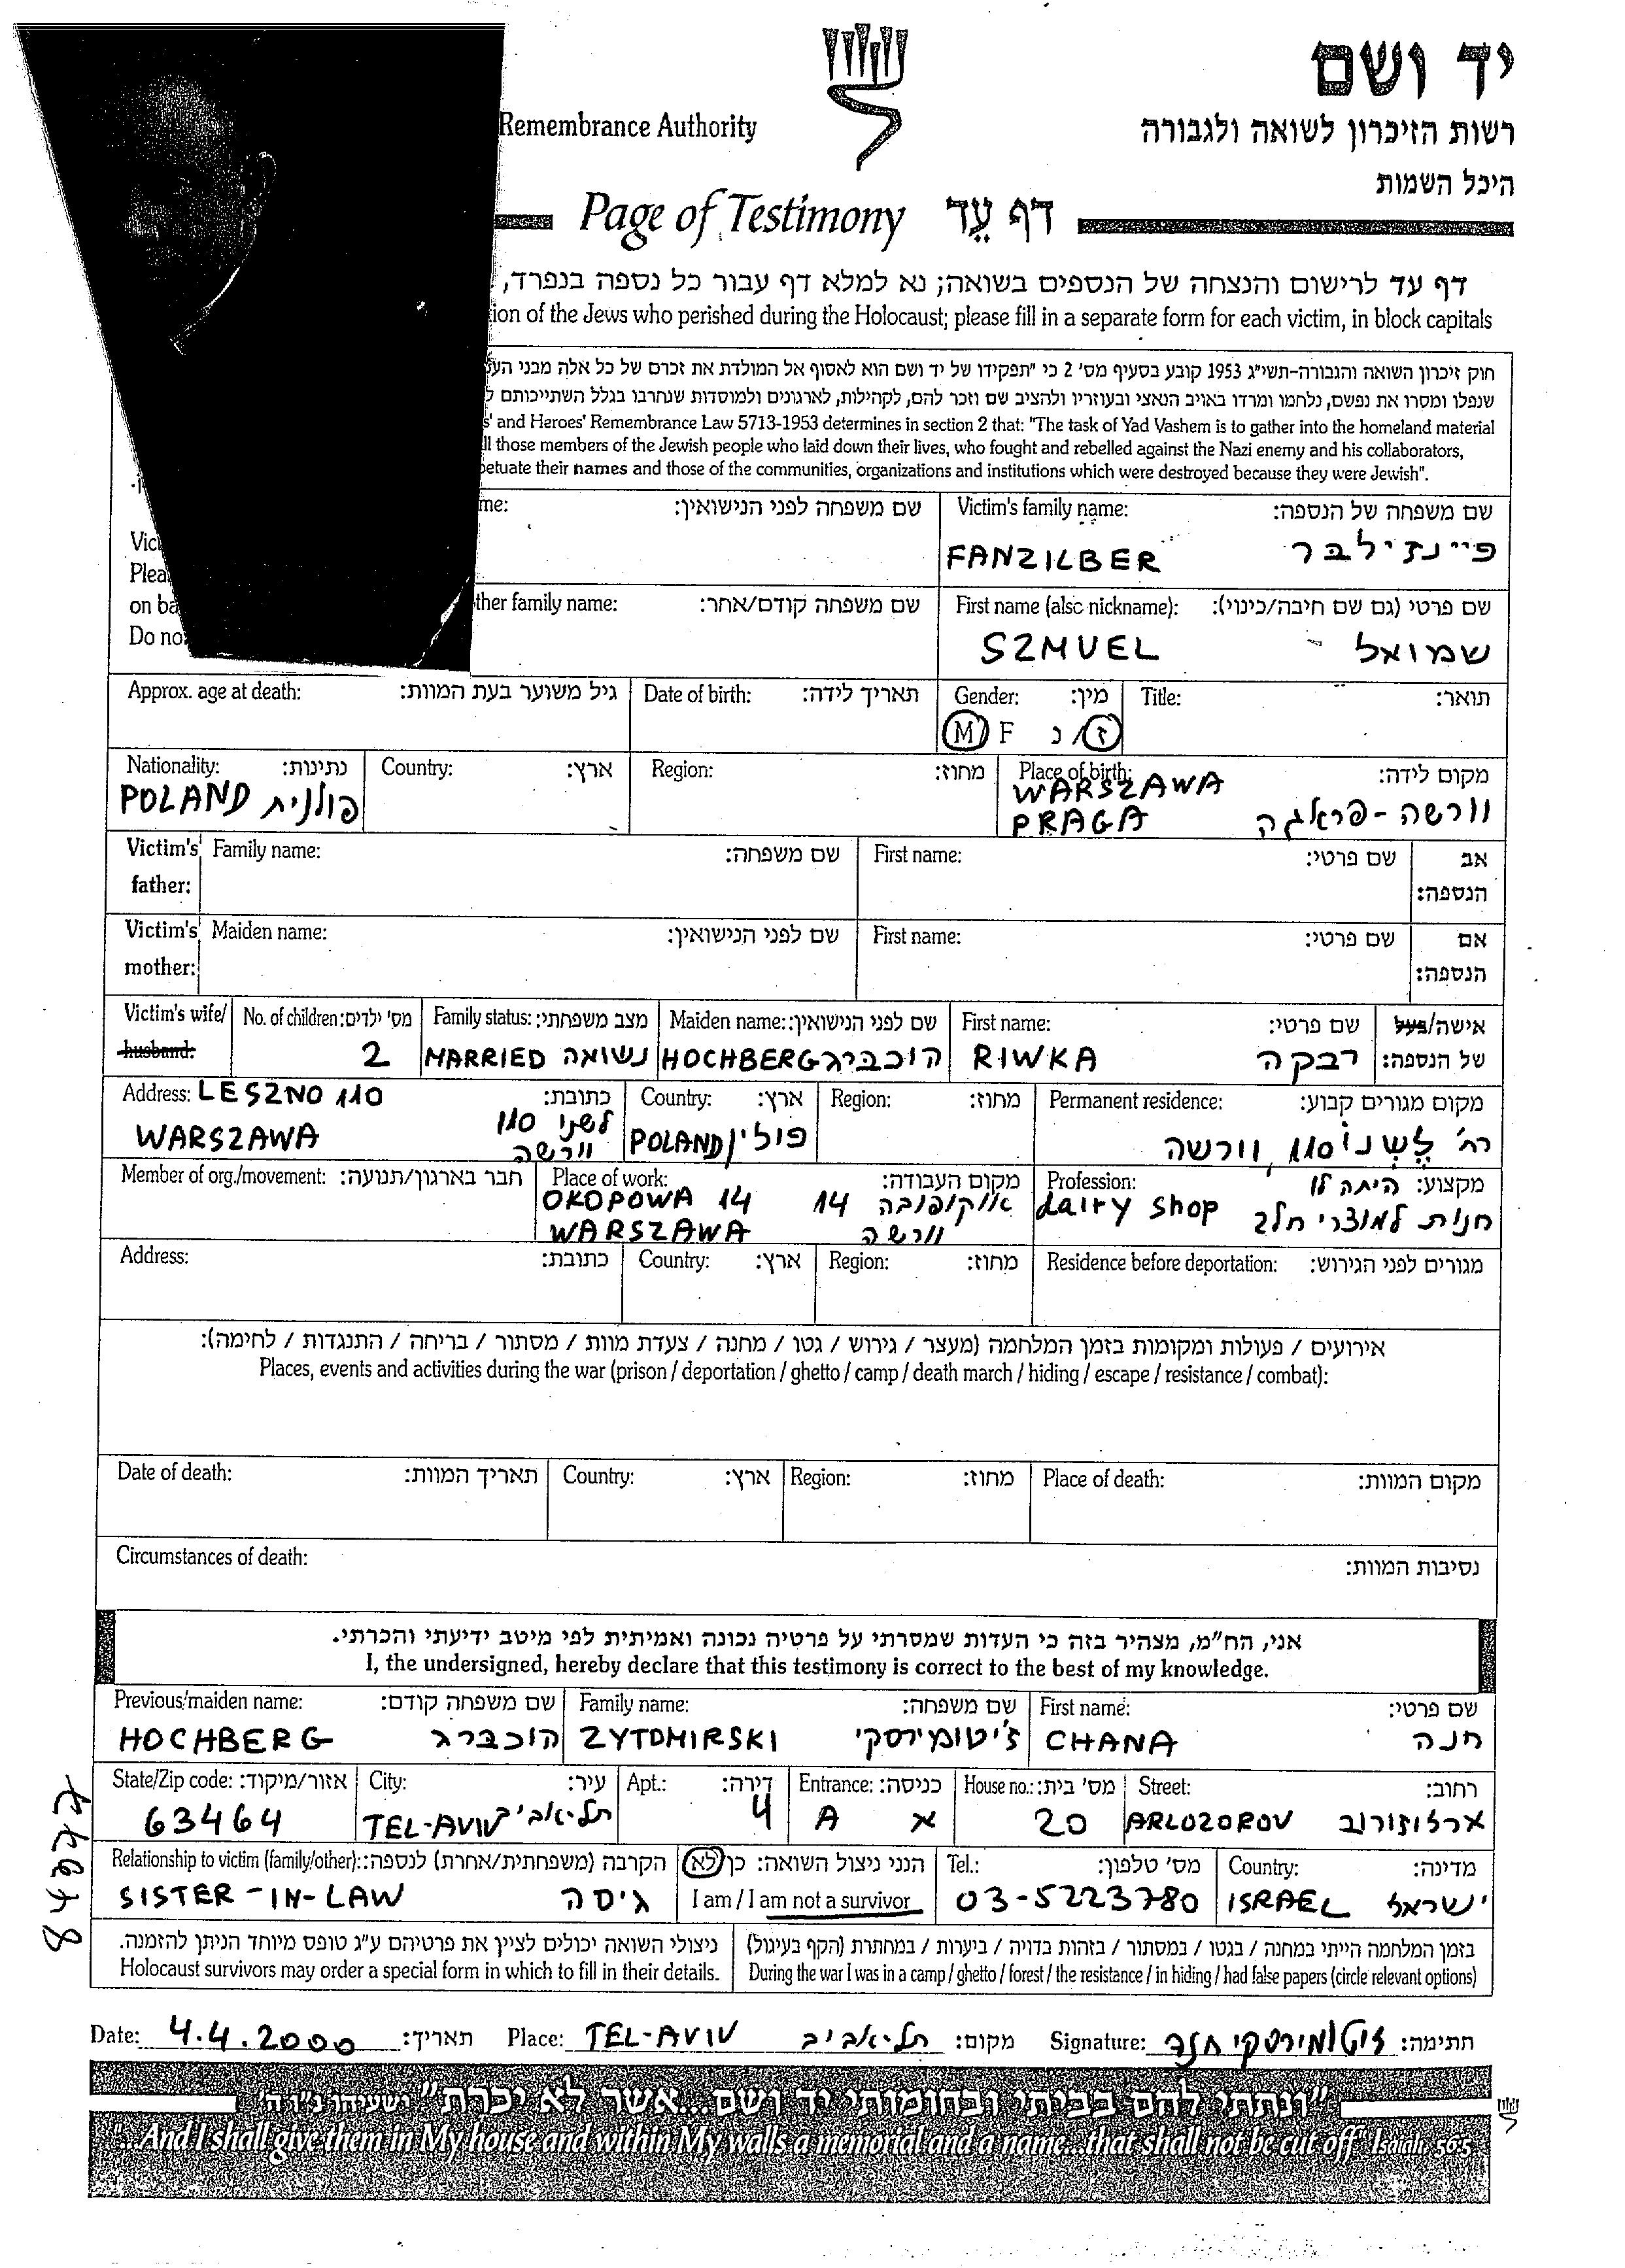 יד ושם
רשות הזיכרון לשואה ולגבורה
Remembrance Authority
היכל השמות
Page of Testimony דף עֵד
דף עד לרישום והנצחה של הנספים בשואה; נא למלא דף עבור כל נספה בנפרד,
ion of the Jews who perished during the Holocaust; please fill in a separate form for each victim, in block capitals
חוק זיכרון השואה והגבורה-תשי״ג 1953 קובע בסעיף מס׳ 2 כי ״תפקידו של יד ושם הוא לאסוף אל המולדת את זכרם של כל אלה מבני
שנפלו ומסרו את נפשם, נלחמו ומרדו באויב הנאצי ובעוזריו ולהציב שם וזכר להם, לקהילות, לארגונים ולמוסדות שנחרבו בגלל השתייכותם
s' and Heroes' Remembrance Law 5713-1953 determines in section 2 that: "The task of Yad Vashem is to gather into the homeland material
ll those members of the Jewish people who laid down their lives, who fought and rebelled against the Nazi enemy and his collaborators,
petuate their names and those of the communities, organizations and institutions which were destroyed because they were Jewish".
me: שם משפחה לפני הנישואין: Victim's family name: שם משפחה של הנספה:
FANZILBER פיינזילבר
Vic
Plea
on ba
Do no
ther family name: שם משפחה קודם/אחר: First name (also nickname): שם פרטי (גם שם חיבה/כינוי):
SZMUEL שמואל
Approx. age at death: גיל משוער בעת המוות: Date of birth: תאריך לידה: Gender: מין: Title: תואר:
M F ז/נ
Nationality: נתינות: Country: ארץ: Region: מחוז: Place of birth: מקום לידה:
POLAND פולנית WARSZAWA
PRAGA וורשה - פראגה
Victim's father: Family name: שם משפחה: First name: שם פרטי: אב הנספה:
Victim's mother: Maiden name: שם לפני הנישואין: First name: שם פרטי: אם הנספה:
Victim's wife/ husband: No. of children: מס׳ ילדים: Family status: מצב משפחתי: Maiden name: שם לפני הנישואין: First name: שם פרטי: אישה/בעל של הנספה:
2 MARRIED נשואה HOCHBERG הוכברג RIWKA רבקה
Address: כתובת: Country: ארץ: Region: מחוז: Permanent residence: מקום מגורים קבוע:
LESZNO 110 WARSZAWA לשנו 110 וורשה POLAND פולין רח׳ לֶשְנוֹ 110, וורשה
Member of org./movement: חבר בארגון/תנועה: Place of work: מקום העבודה: Profession: מקצוע:
OKOPOWA 14 אוקופובה 14 היתה לו
WARSZAWA וורשה dairy shop חנות למוצרי חלב
Address: כתובת: Country: ארץ: Region: מחוז: Residence before deportation: מגורים לפני הגירוש:
אירועים / פעולות ומקומות בזמן המלחמה (מעצר / גירוש / גטו / מחנה / צעדת מוות / מסתור / בריחה / התנגדות / לחימה):
Places, events and activities during the war (prison / deportation / ghetto / camp / death march / hiding / escape / resistance / combat):
Date of death: תאריך המוות: Country: ארץ: Region: מחוז: Place of death: מקום המוות:
Circumstances of death: נסיבות המוות:
אני, הח״מ, מצהיר בזה כי העדות שמסרתי על פרטיה נכונה ואמיתית לפי מיטב ידיעתי והכרתי.
I, the undersigned, hereby declare that this testimony is correct to the best of my knowledge.
Previous/maiden name: שם משפחה קודם: Family name: שם משפחה: First name: שם פרטי:
HOCHBERG הוכברג ZYTOMIRSKI ז׳יטומירסקי CHANA חנה
State/Zip code: אזור/מיקוד: City: עיר: Apt.: דירה: Entrance: כניסה: House no.: מס׳ בית: Street: רחוב:
63464 TEL-AVIV תל-אביב 4 A א 20 ARLOZOROV ארלוזורוב
Relationship to victim (family/other): הקרבה (משפחתית/אחרת) לנספה: הנני ניצול השואה: כן/לא Tel.: מס׳ טלפון: Country: מדינה:
SISTER-IN-LAW גיסה I am / I am not a survivor 03-5223780 ISRAEL ישראל
ניצולי השואה יכולים לציין את פרטיהם ע״ג טופס מיוחד הניתן להזמנה. בזמן המלחמה הייתי במחנה / בגטו / במסתור / בזהות בדויה / ביערות / במחתרת (הקף בעיגול)
Holocaust survivors may order a special form in which to fill in their details. During the war I was in a camp / ghetto / forest / the resistance / in hiding / had false papers (circle relevant options)
Date: 4.4.2000 תאריך: Place: TEL-AVIV תל-אביב מקום: Signature: זיטומירסקי חנה חתימה:
״ונתתי להם בביתי ובחומותי יד ושם...אשר לא יכרת״ ישעיהו נ״ו ה׳
"...And I shall give them in My house and within My walls a memorial and a name...that shall not be cut off" Isaiah 56:5